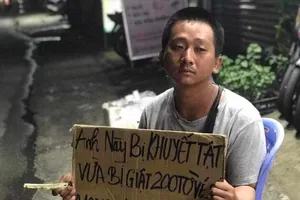 Anh Này Bị KHUYẾT TẬT
VỪA BỊ GIẬT 200 TỜ VÉ